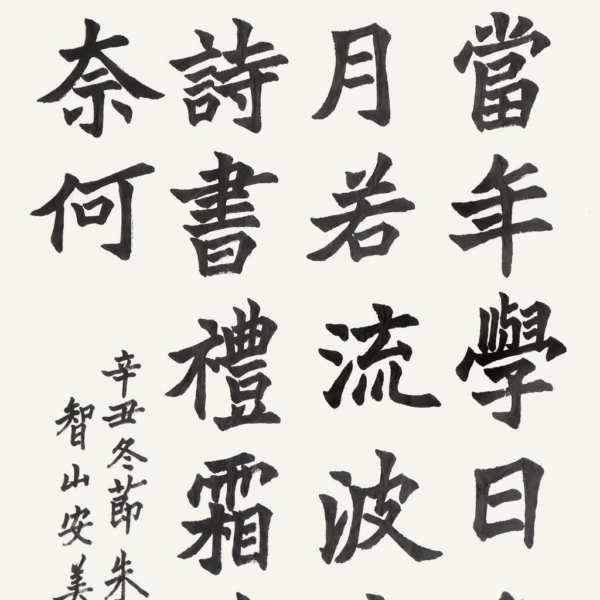 當年學日
月若流波
詩書禮霜
奈何
辛丑冬節朱
智山安美